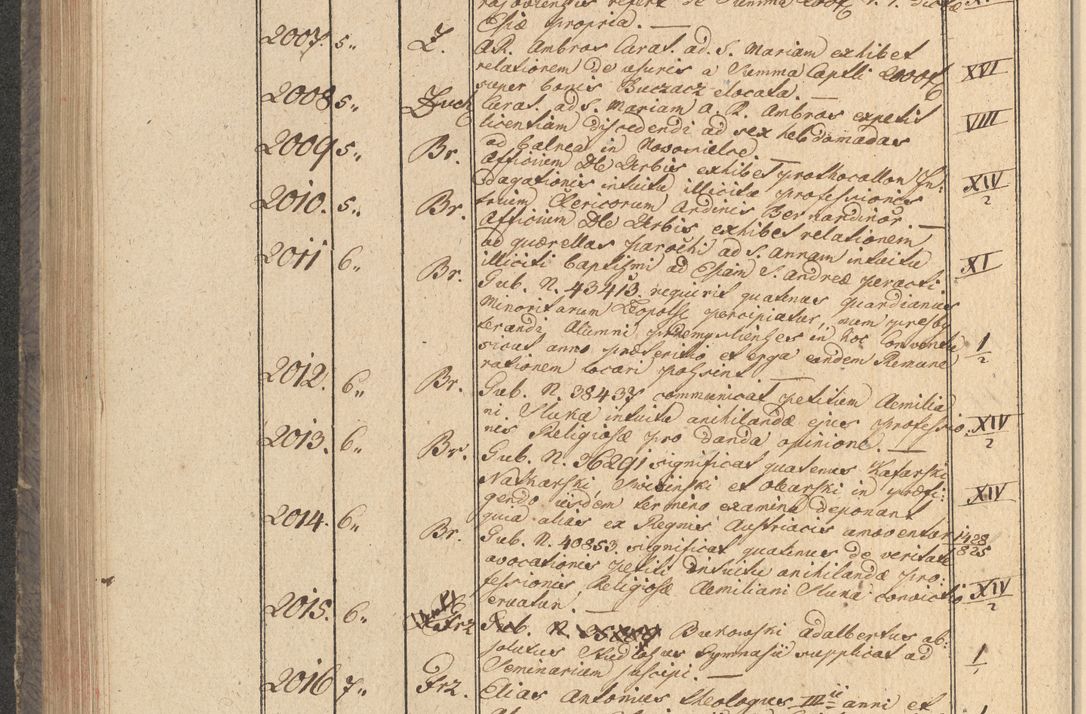 Essiæ propria. —
2007. 5„ Z. A.R. Ambros Curat. ad. S. Mariam exhibet
relationem de usuris a Summa Captli 2000 f XVI
super bonis Buczacz elocata. —
2008 5„ Curat. ad S. Mariam a. R. Ambros expetit
licentiam discedendi ad sex hebdomadas VIII
ad balnea in Novosielce
2009 5„ Br. Officium Dle Urbis exhibet prothocollon In-
dagationis intuitu illicitæ professionis XIV/2
trium Clericorum Ordinis Bernardinor. —
2010. 5„ Br. Officium Dle Urbis exhibet relationem
ad quærellas parochi ad S. Annam intuitu
illiciti baptismi ad Essiam S. Andreæ peracti XI
2011 6„ Br. Gub. N. 43413. requirit quatenus Guardianus
Minoritarum Leopoli percipiatur, num presby
terandi Alumni in hoc Conventu 1/2
sicut anno præterito et erga eandem Remune
rationem locari possint —
2012. 6„ Br. Gub. N. 38437 communicat petitum Aemilia
ni intuitu anihilandæ ejus professio XIV/2
nis Religiosæ pro danda opinione. —
2013. 6„ Br. Gub. N. 36291 significat quatenus
et in præfi-
gendo iisdem termino examina deponant XIV
quia alias ex Regnis Austriacis amoventur 1428
2014. 6„ Br. Gub. N. 40853. significat quatenus de veritate 1825
avocationis petiti intuitu anihilandæ pro-
fessionis Religiosæ Aemiliani XIV/2
eruatur. —
2015. 6„ Frz Gub. N. Bukowski Adalbertus ab-
solutus Gymnasii supplicat ad 1
Seminarium suscipi. —
2016 7„ Frz. Elias Antonius theologus III ii anni et